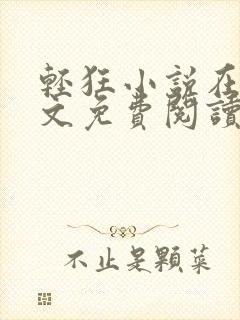 輕狂小說在
文免費閱讀
不止是顆菜